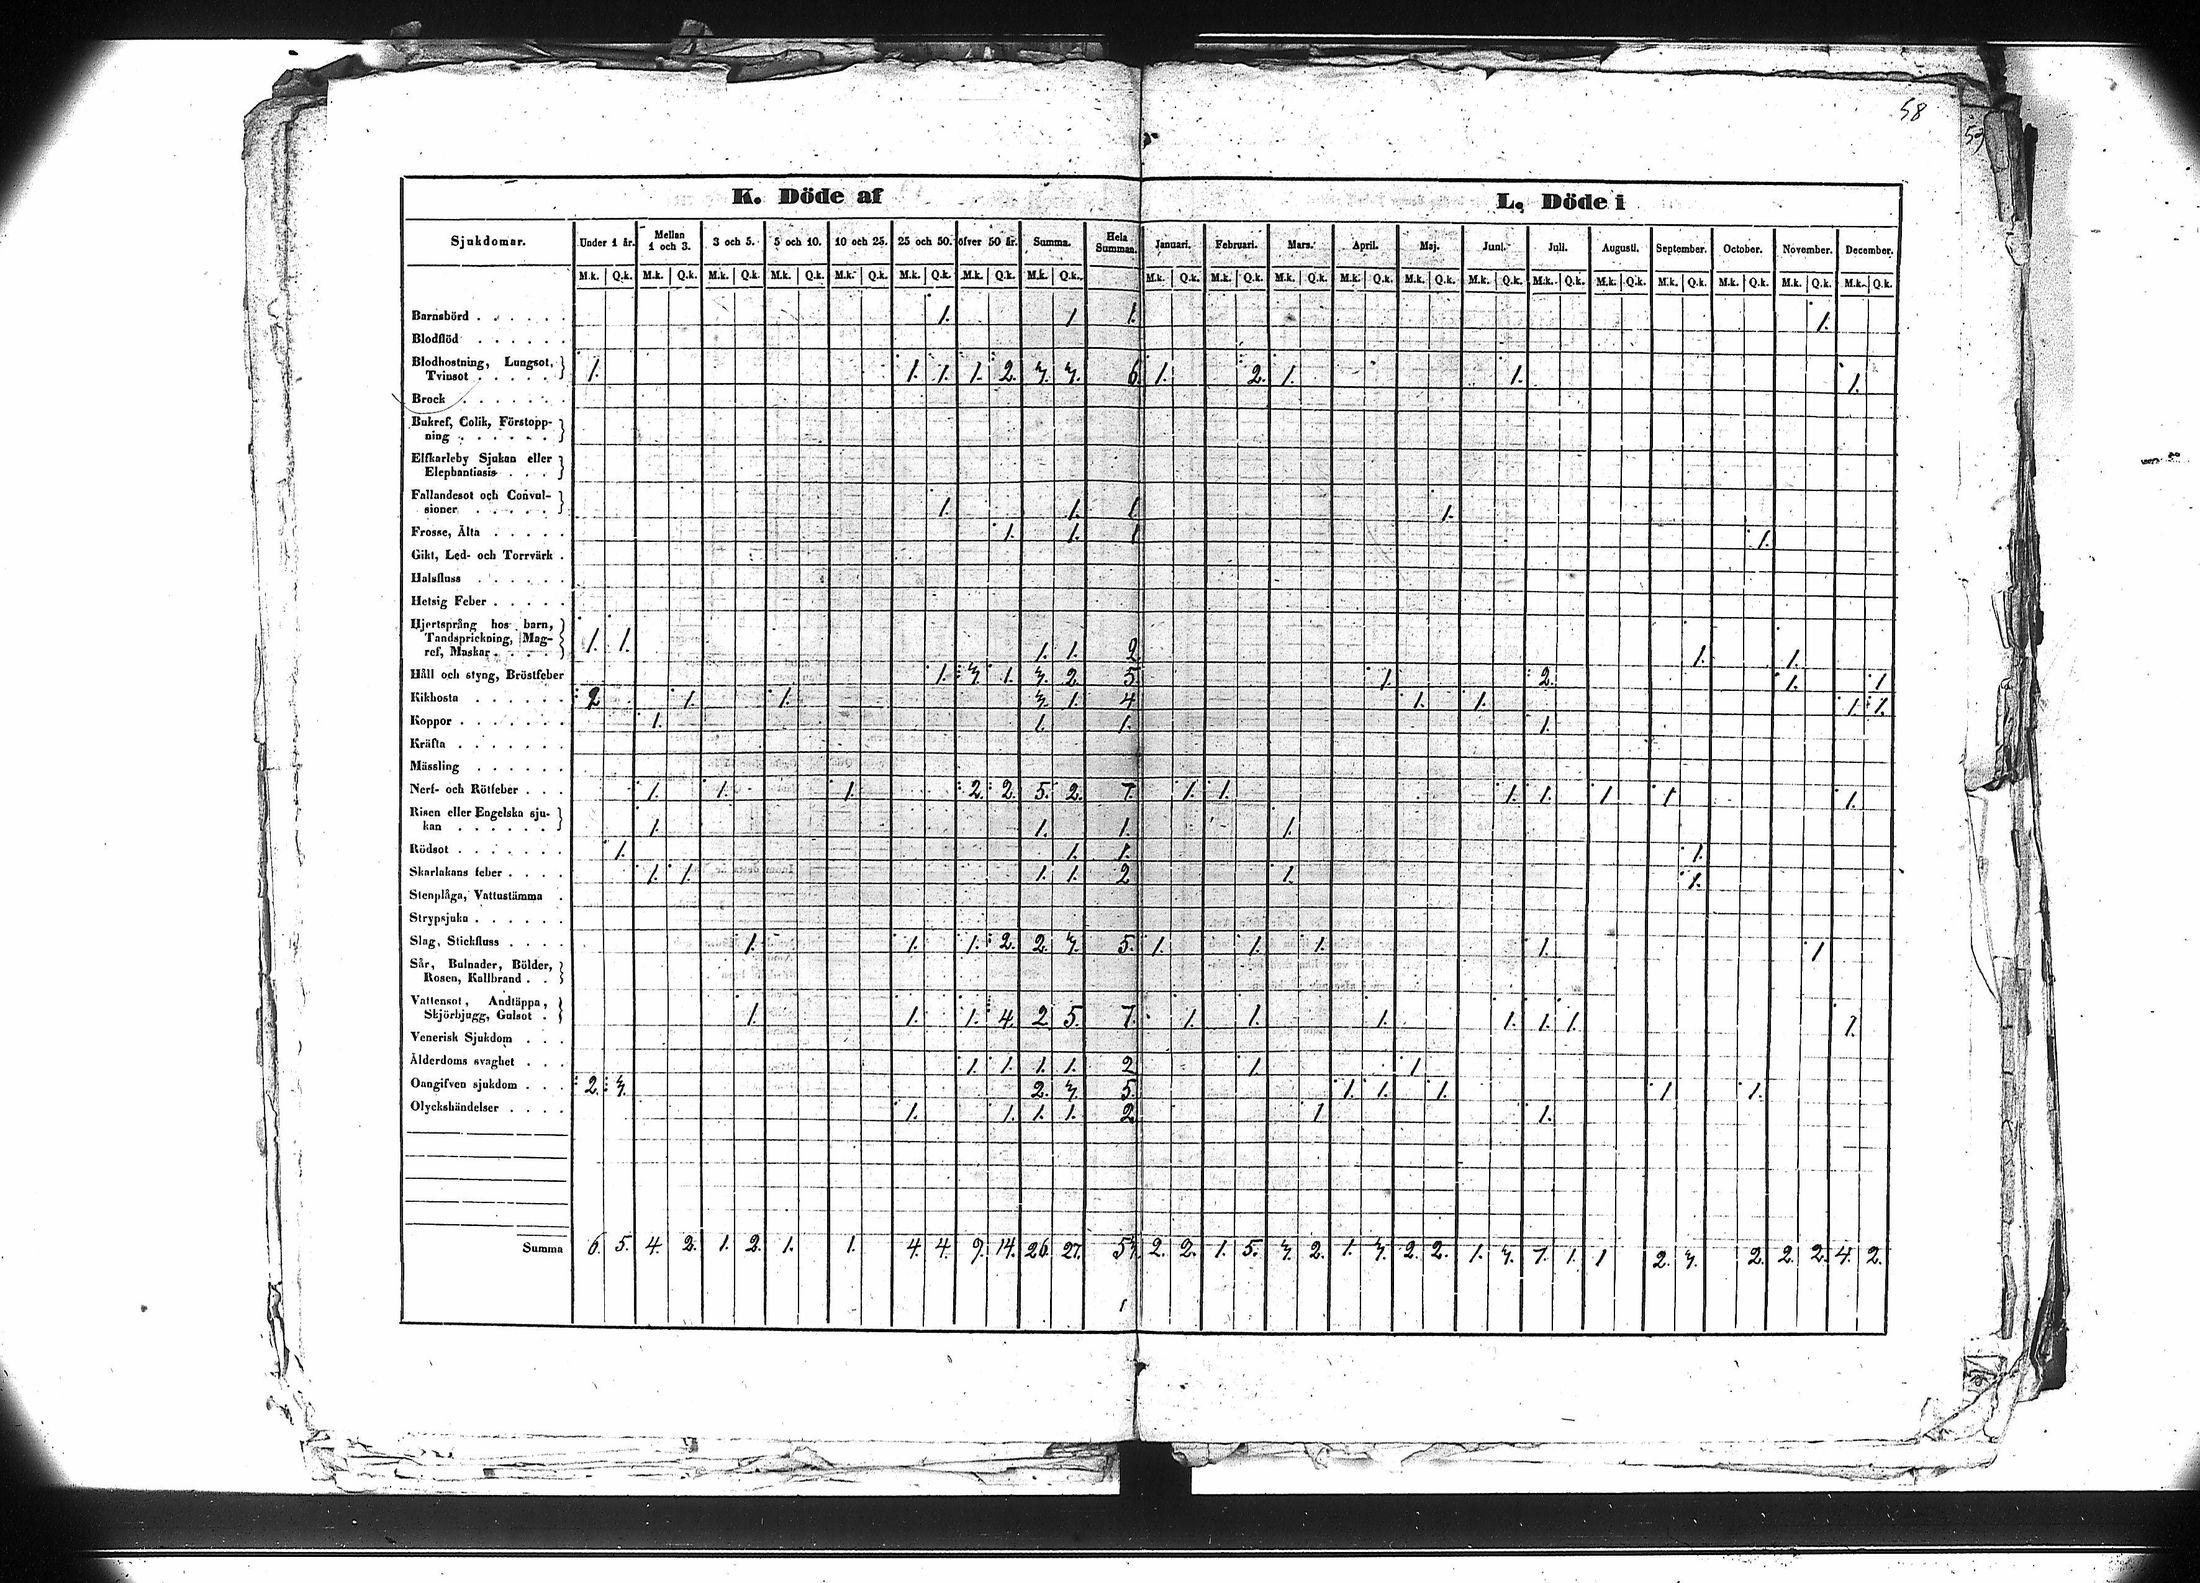 58
59
K. Döde af
L. Döde i
Sjukdomar. Under 1 år. Mellan 1 och 3. 3 och 5. 5 och 10. 10 och 25. 25 och 50. öfver 50 år. Summa. Hela Summan. Januari. Februari. Mars. April. Maj. Juni. Juli. Augusti. September. October. November. December.
M.k. Q.k. M.k. Q.k. M.k. Q.k. M.k. Q.k. M.k. Q.k. M.k. Q.k. M.k. Q.k. M.k. Q.k. M.k. Q.k. M.k. Q.k. M.k. Q.k. M.k. Q.k. M.k. Q.k. M.k. Q.k. M.k. Q.k. M.k. Q.k. M.k. Q.k. M.k. Q.k. M.k. Q.k. M.k. Q.k.
Barnsbörd . . . . . . 1. 1 1. 1.
Blodflöd . . . . . .
Blodhostning, Lungsot,
Tvinsot . . . . . 1. 1. 1. 1. 2. 3. 3. 6. 1. 2. 1. 1. 1.
Brock . . . . . .
Bukref, Colik, Förstopp-
ning . . . . . .
Elfkarleby Sjukan eller
Elephantiasis . . .
Fallandesot och Convul-
sioner . . . . . 1. 1. 1 1.
Frosse, Älta . . . . . 1. 1. 1 1.
Gikt, Led- och Torrvärk .
Halsfluss . . . . .
Hetsig Feber . . . . .
Hjertsprång hos barn,
Tandsprickning, Mag-
ref, Maskar . . . . 1. 1. 1. 1. 2 1. 1.
Håll och styng, Bröstfeber 1. 3. 1. 3. 2. 5. 1. 2. 1. 1.
Kikhosta . . . . . . 2 1. 1. 3. 1. 4 1. 1. 1. 1.
Koppor . . . . . . . 1. 1. 1. 1.
Kräfta . . . . . . .
Mässling . . . . . .
Nerf- och Rötfeber . . . 1. 1. 1. 2. 2. 5. 2. 7. 1. 1. 1. 1. 1 1 1.
Risen eller Engelska sju-
kan . . . . . . 1. 1. 1. 1.
Rödsot . . . . . . . 1. 1. 1. 1.
Skarlakans feber . . . . 1. 1. 1. 1. 2 1. 1.
Stenplåga, Vattustämma .
Strypsjuka . . . . . .
Slag, Stickfluss . . . . 1. 1. 1. 2. 2. 3. 5. 1. 1. 1. 1. 1
Sår, Bulnader, Bölder,
Rosen, Kallbrand . .
Vattensot, Andtäppa,
Skjörbjugg, Gulsot . 1. 1. 1. 4. 2. 5. 7. 1. 1. 1. 1. 1. 1. 1.
Venerisk Sjukdom . . .
Ålderdoms svaghet . . . 1. 1. 1. 1. 2 1. 1.
Oangifven sjukdom . . . 2. 3. 2. 3. 5. 1. 1. 1. 1. 1.
Olyckshändelser . . . . 1. 1. 1. 1. 2. 1 1.
Summa 6. 5. 4. 2. 1. 2. 1. 1. 4. 4. 9. 14. 26. 27. 53. 2. 2. 1. 5. 3. 2. 1. 3. 2. 2. 1. 3. 7. 1. 1 2. 3. 2. 2. 2. 4. 2.